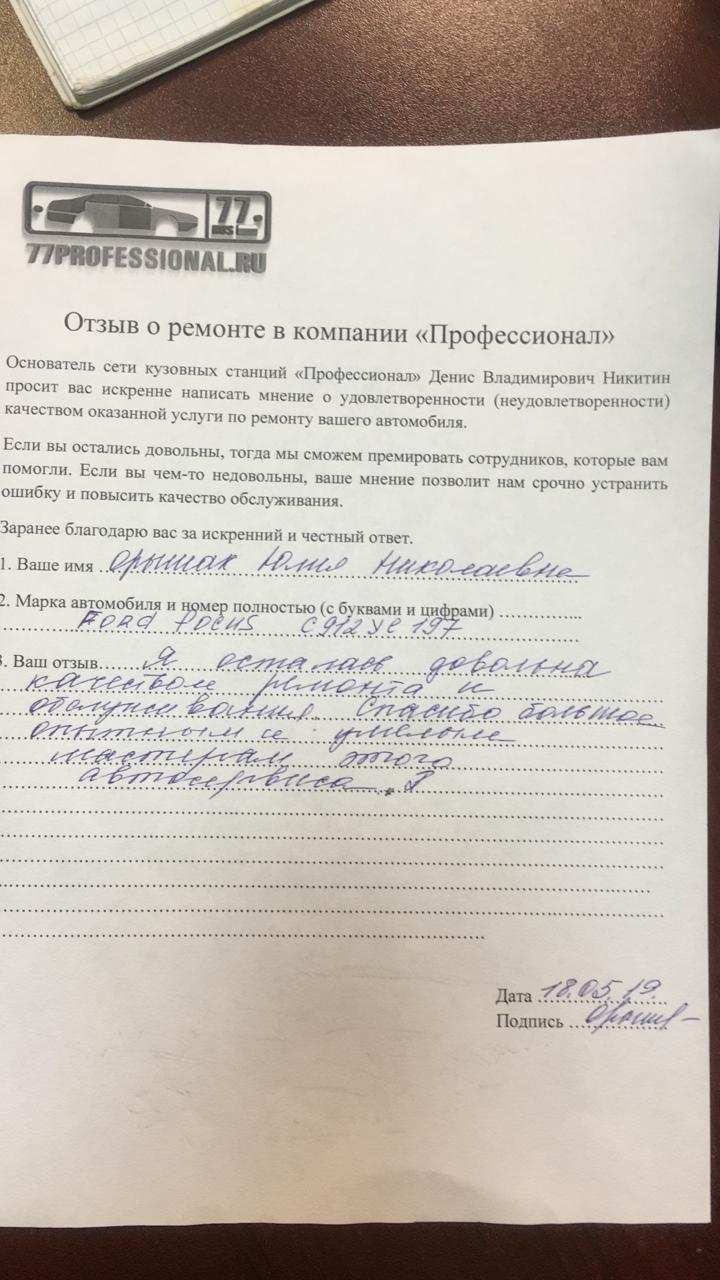 77
RUS
77PROFESSIONAL.RU
Отзыв о ремонте в компании «Профессионал»
Основатель сети кузовных станций «Профессионал» Денис Владимирович Никитин
просит вас искренне написать мнение о удовлетворенности (неудовлетворенности)
качеством оказанной услуги по ремонту вашего автомобиля.
Если вы остались довольны, тогда мы сможем премировать сотрудников, которые вам
помогли. Если вы чем-то недовольны, ваше мнение позволит нам срочно устранить
ошибку и повысить качество обслуживания.
Заранее благодарю вас за искренний и честный ответ.
1. Ваше имя Орышак Юлия Николаевна
2. Марка автомобиля и номер полностью (с буквами и цифрами)
Ford Focus С912УС 197
3. Ваш отзыв Я осталась довольна
качеством ремонта и
обслуживания. Спасибо большое
опытным и умелым
мастерам этого
автосервиса.
Дата 18.05.19.
Подпись